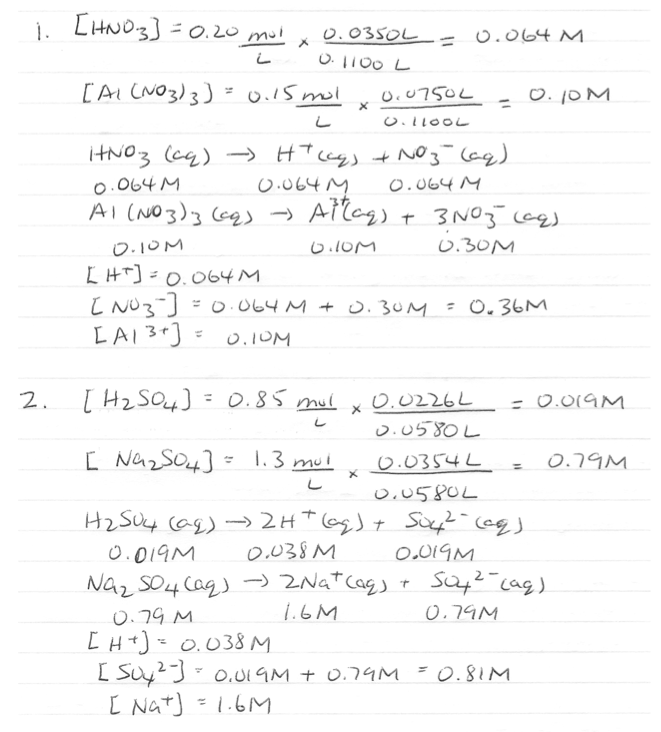 1. [HNO3] = 0.20 mol/L × 0.0350L/0.1100 L = 0.064 M
[Al (NO3)3] = 0.15 mol/L × 0.0750L/0.1100L = 0.10M
HNO3 (aq) → H+ (aq) + NO3- (aq)
0.064M 0.064M 0.064M
Al (NO3)3 (aq) → Al3+(aq) + 3NO3- (aq)
0.10M 0.10M 0.30M
[H+] = 0.064M
[NO3-] = 0.064M + 0.30M = 0.36M
[Al 3+] = 0.10M
2. [H2SO4] = 0.85 mol/L × 0.0226L/0.0580L = 0.019M
[Na2SO4] = 1.3 mol/L × 0.0354L/0.0580L = 0.79M
H2SO4 (aq) → 2H+ (aq) + SO4 2- (aq)
0.019M 0.038M 0.019M
Na2SO4(aq) → 2Na+(aq) + SO4 2-(aq)
0.79 M 1.6M 0.79M
[H+] = 0.038M
[SO4 2-] = 0.019M + 0.79M = 0.81M
[Na+] = 1.6M